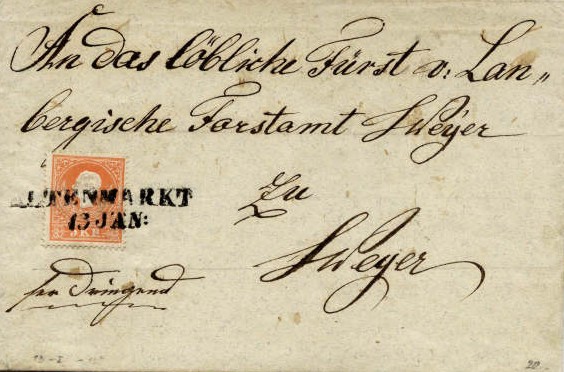 An das löbliche Fürst v: Lan„
bergische Forstamt Weyer
ALTENMARKT
13 JAN:
5 KR
Zu
Weyer
sehr Dringend
20